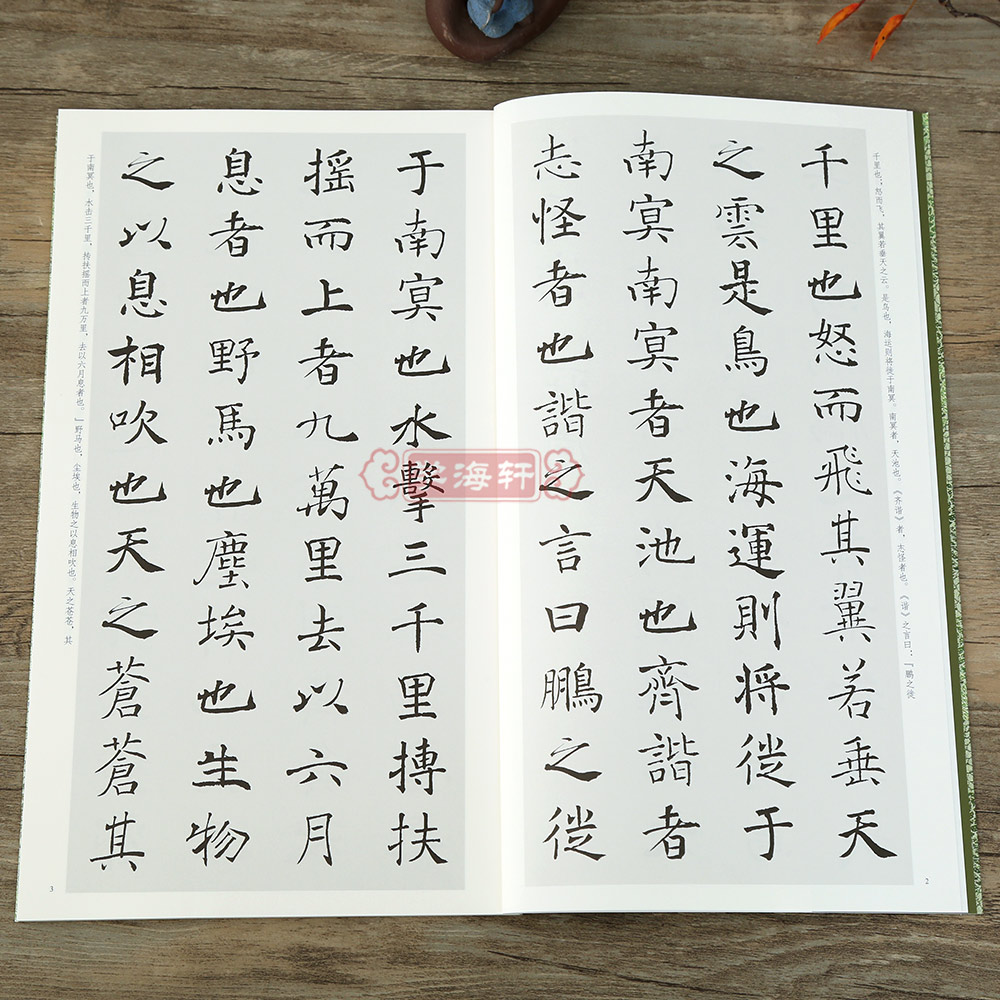 千里也；怒而飞，其翼若垂天之云。是鸟也，海运则将徙于南冥。南冥者，天池也。《齐谐》者，志怪者也。《谐》之言曰：「鹏之徙
千里也怒而飛其翼若垂天
之雲是鳥也海運則将徙于
南冥南冥者天池也齊諧者
志怪者也諧之言曰鵬之徙
2
于南冥也水擊三千里摶扶
摇而上者九萬里去以六月
息者也野馬也塵埃也生物
之以息相吹也天之蒼蒼其
于南冥也，水击三千里，抟扶摇而上者九万里，去以六月息者也。」野马也，尘埃也，生物之以息相吹也。天之苍苍，其
3
学海轩